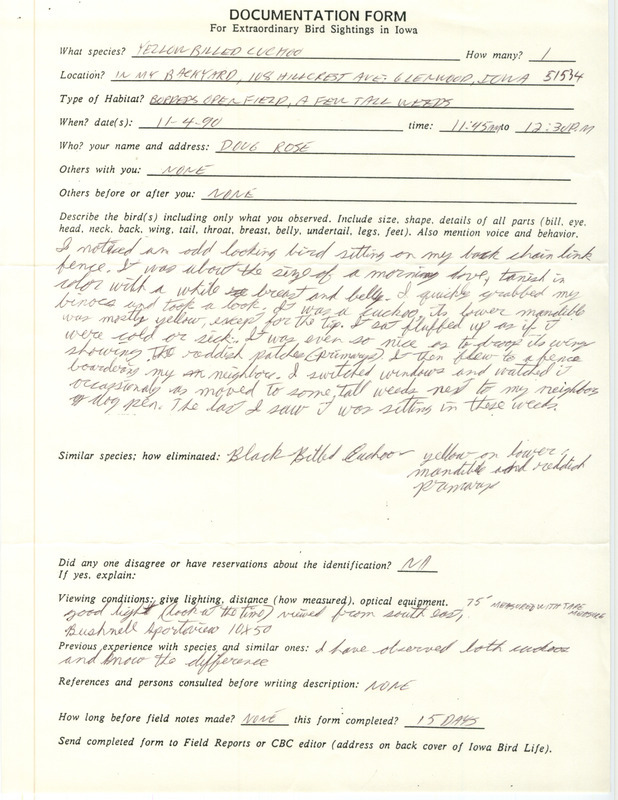 DOCUMENTATION FORM
For Extraordinary Bird Sightings in Iowa
What species? YELLOW BILLED CUCHOO How many? 1
Location? IN MY BACKYARD, 108 HILLCREST AVE. GLENWOOD, IOWA 51534
Type of Habitat? BORDERS OPEN FIELD, A FEW TALL WEEDS
When? date(s): 11-4-90 time: 11:45am to 12:30P.M
Who? your name and address: DOUG ROSE
Others with you: NONE
Others before or after you: NONE
Describe the bird(s) including only what you observed. Include size, shape, details of all parts (bill, eye,
head, neck, back, wing, tail, throat, breast, belly, undertail, legs, feet). Also mention voice and behavior.
I noticed an odd looking bird sitting on my back chain link
fence. It was about the size of a morning dove, tanish in
color with a white breast and belly. I quickly grabbed my
binocs and took a look. It was a cuchoo, its lower mandible
was mostly yellow, except for the tip. I sat fluffed up as if it
were cold or sick. It was even so nice as to droop its wing
showing the reddish patches (primarys). I then flew to a fence
boardering my neighbors. I switched windows and watched it
occasionaly as moved to some tall weeds next to my neighbors
dog pen. The last I saw it was sitting in these weeds.
Similar species; how eliminated: Black Billed Cuchoo - yellow on lower
mandible and reddish
primarys
Did any one disagree or have reservations about the identification? NA
If yes, explain:
Viewing conditions; give lighting, distance (how measured), optical equipment. 75' MEASURED WITH TAPE
MEASURE
good light (look at the time) viewed from south east,
Bushnell Sportview 10X50
Previous experience with species and similar ones: I have observed both cuckoos
and know the difference
References and persons consulted before writing description: NONE
How long before field notes made? NONE this form completed? 15 DAYS
Send completed form to Field Reports or CBC editor (address on back cover of Iowa Bird Life).